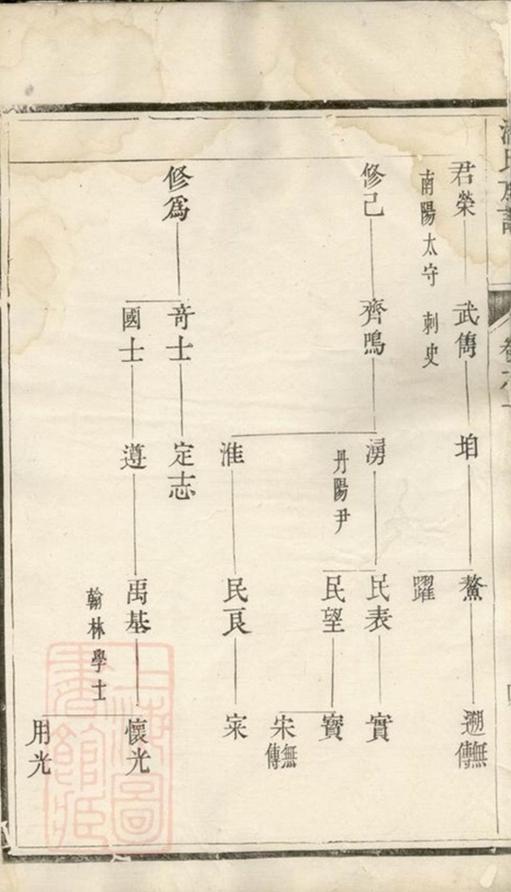 氏族譜
君榮
南陽太守 刺史
武雋
珀
鰲
躍
遡無傳
修己
齊鳴
湧
丹陽尹
淮
民表
民望
民良
實
寶
宋無傳
寀
修爲
竒士
國士
定志
遵
禹基
翰林學士
懷光
用光
上海圖書館藏